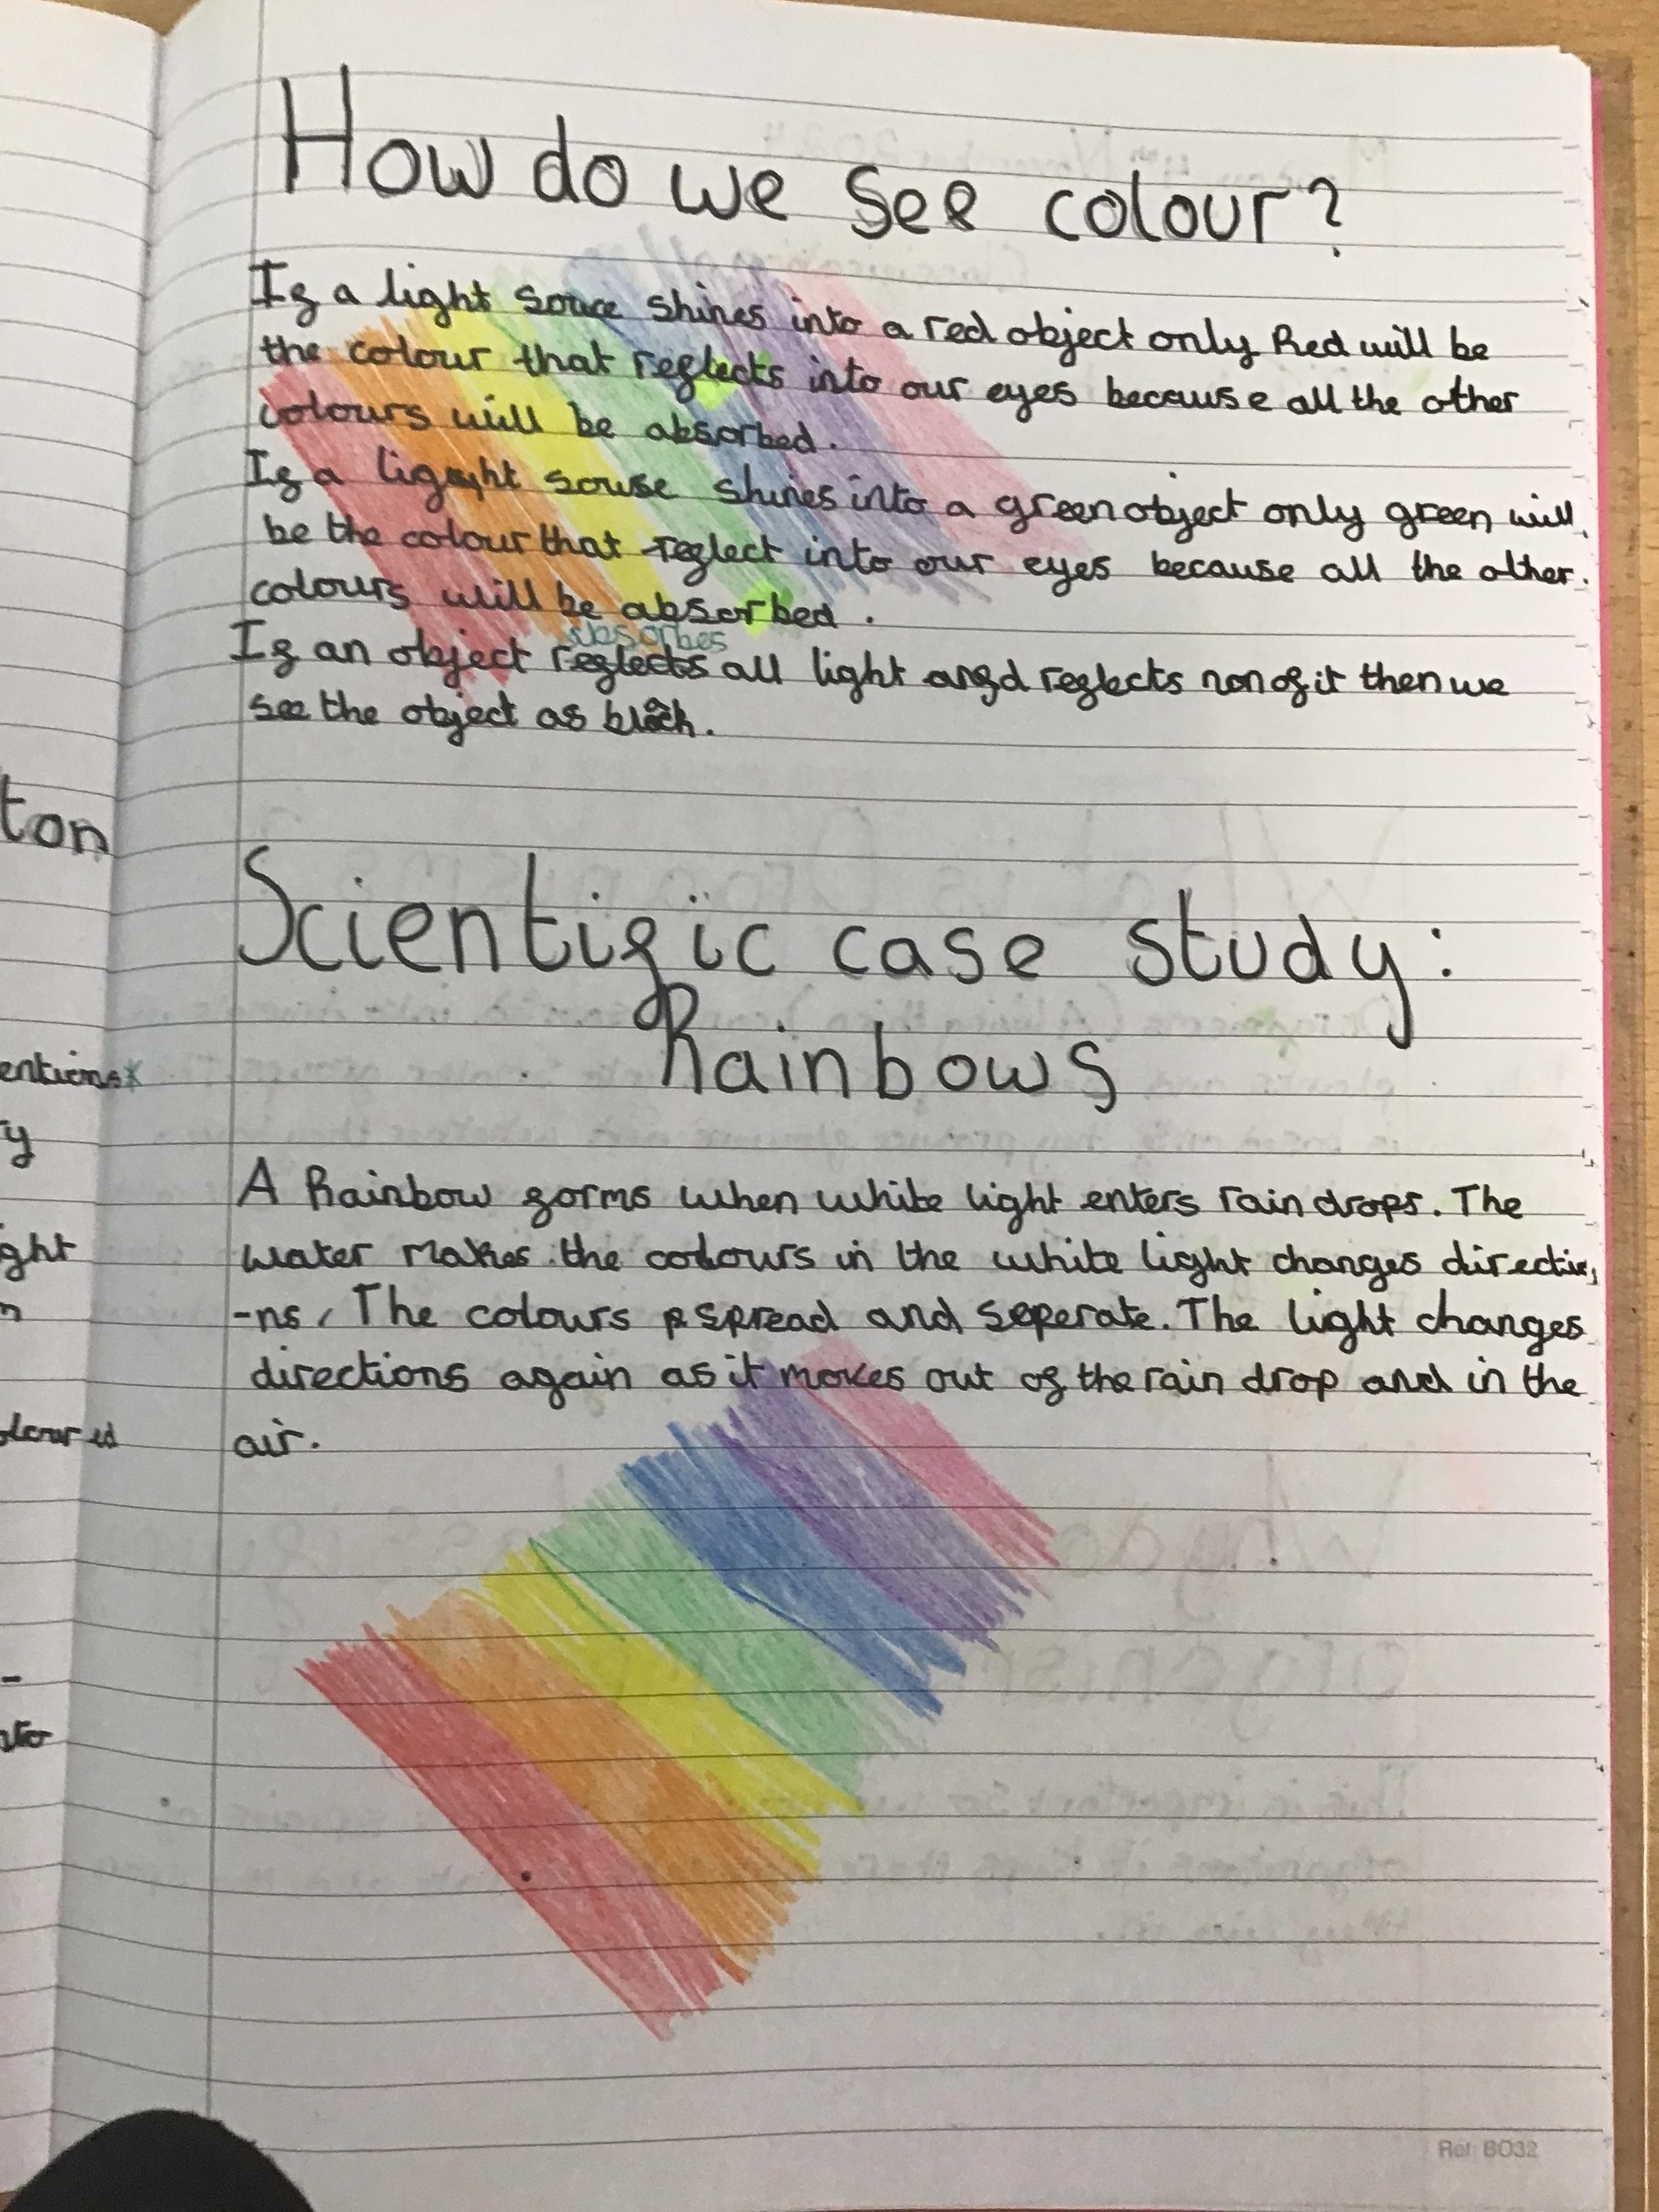 How do we see colour?
If a light souce shines into a red object only Red will be
the colour that reflects into our eyes because all the other
colours will be absorbed.
If a light souse shines into a green object only green will
be the colour that reflect into our eyes because all the other.
colours will be absorbed.
absorbes
If an object reflects all light and reflects non of it then we
see the object as black.
ton
Scientific case study:
Rainbows
entions
y
A Rainbow forms when white light enters rain drops. The
ght
water makes the colours in the white light changes directio
-ns, The colours spread and seperate. The light changes
directions again as it moves out of the rain drop and in the
air.
Ref: BO32